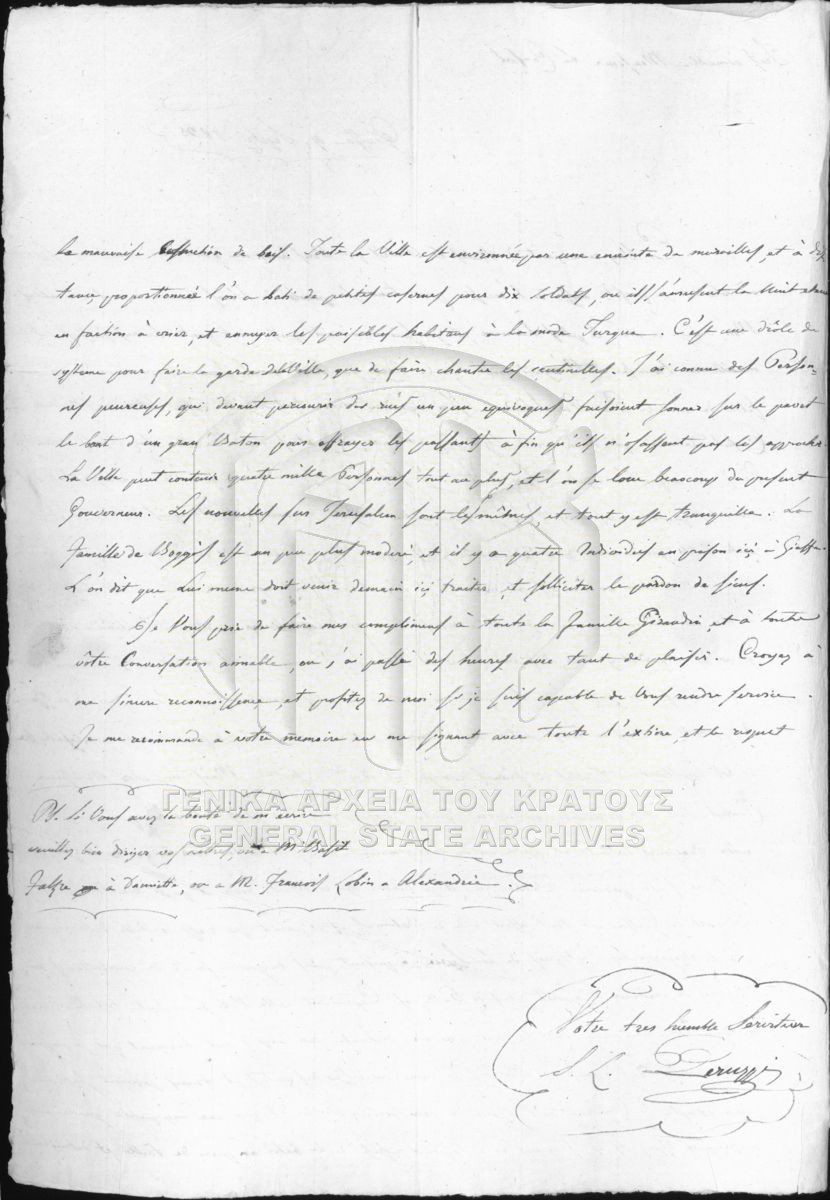 la mauvaise construction de bois. Toute la Ville est environnée par une enceinte de murailles, et à dis
tance proportionnée l'on a bati de petites casernes pour dix soldats, ou ils s'amusent la Nuit etant
en faction à crier, et ennuyer les paisibles habitans à la mode Turque. C'est une drôle de
systeme pour faire la garde dela Ville, que de faire chanter les sentinelles. J'ai connu des Person-
nes peureuses, qui devant parcourir des rues un peu equivoques faisoient sonner sur le pavet
le bout d'un gran Baton pour effrayer les passants à fin qu'ils n'osassent pas les approcher
La Ville peut contenir quatre mille Personnes tout au plus, et l'on se loue beaucoup du present
Gouverneur. Les nouvelles sur Jerusalem sont les mêmes, et tout y est tranquille. La
famille de Boggôs est un peu plus moderé, et il y a quatre Individus en prison içi à Giaffa.
L'on dit que Lui meme doit venir demain içi traiter, et solliciter le pardon de sieus.
Je Vous prie de faire mes complimens à toute la famille Giraudin, et à toute
vôtre Conversation aimable, ou j'ai passé des heures avec tant de plaisir. Croyez à
ma sincere reconnoissence et profitez de moi si je suis capable de Vous rendre service.
Je me recommande à votre memoire en me signant avec toute l'estime, et le respect
PS. Si Vous avez la bonté de m'ecrire
veuillez bien diriger vos lettres, ou a Mr Basit
Faker à Damiette, ou a M. François Lobin a Alexandrie.
ΓΕΝΙΚΑ ΑΡΧΕΙΑ ΤΟΥ ΚΡΑΤΟΥΣ
GENERAL STATE ARCHIVES
Votre tres humble Serviteur
S. L. Peruzzi